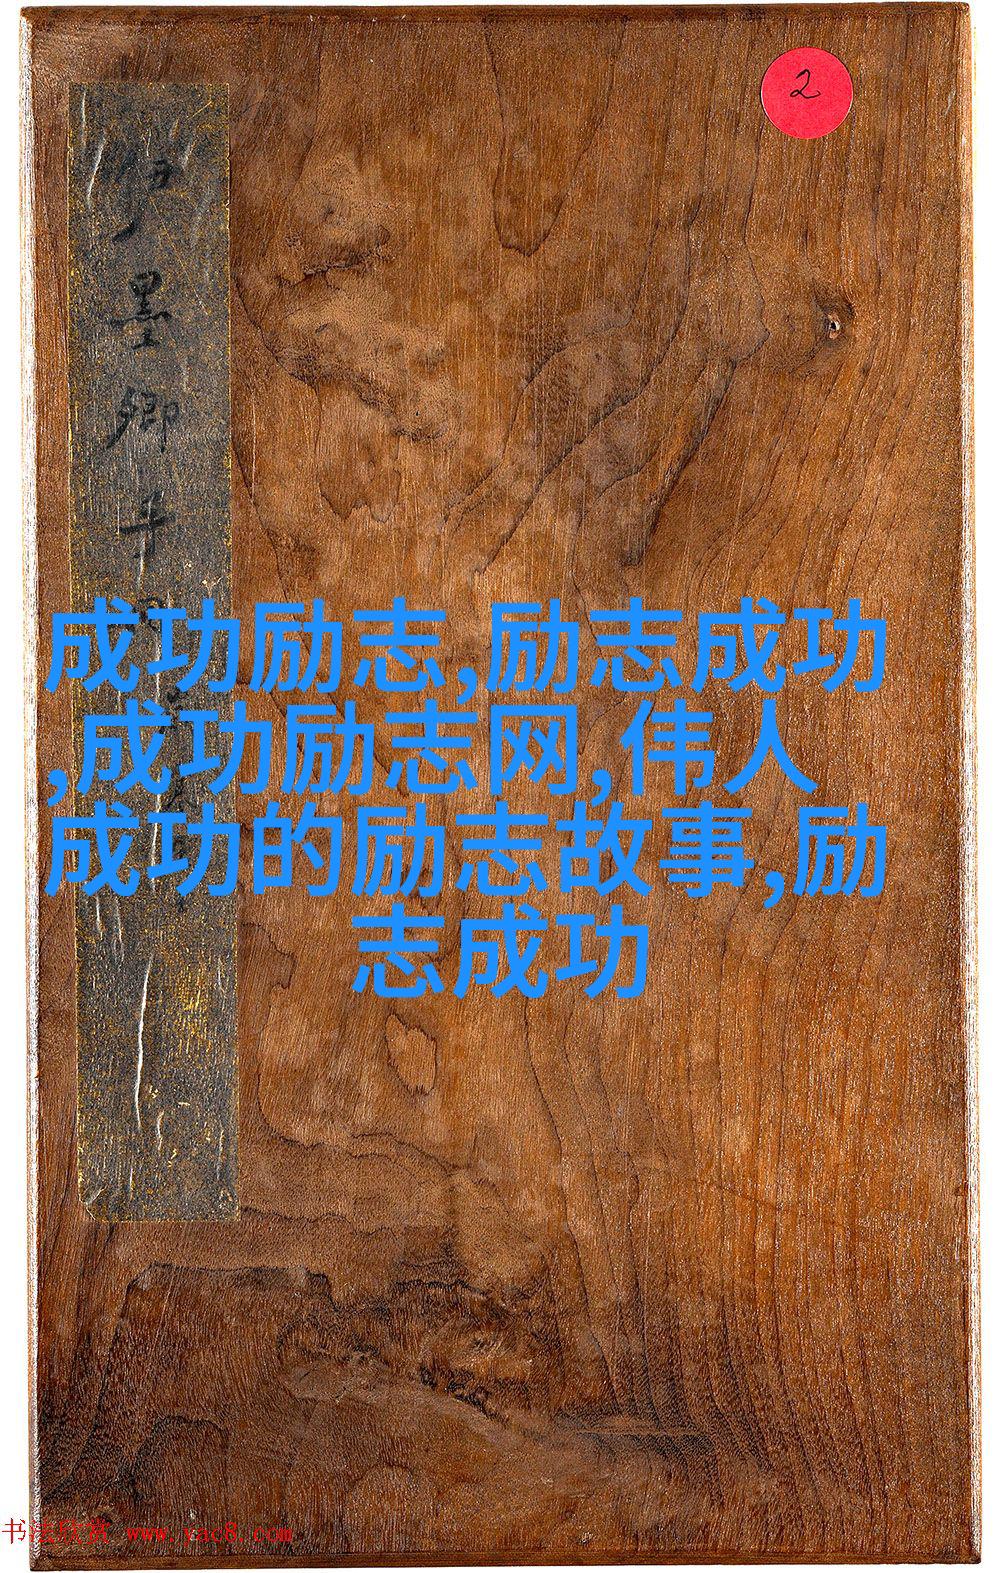 2
墨卿
成功励志,励志成功
,成功励志网,伟人
成功的励志故事,励
志成功
书法欣赏 www.yac8.com